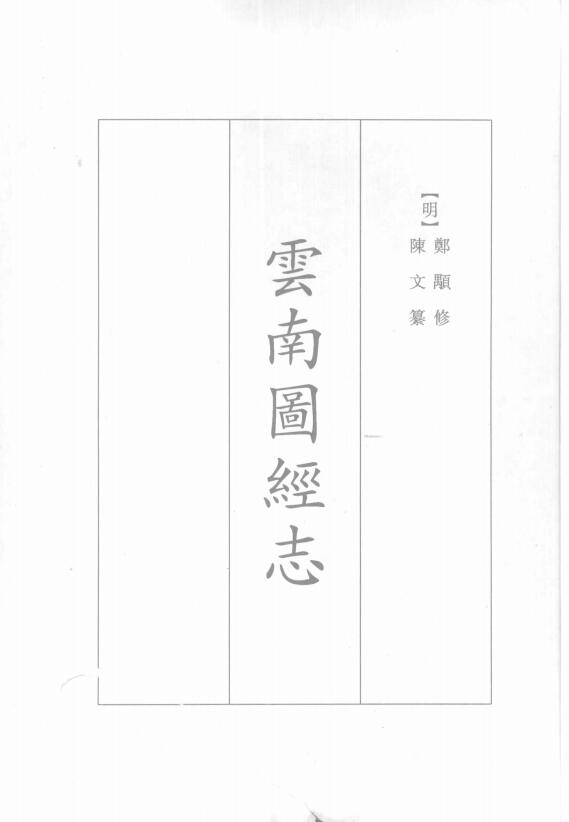 【明】
鄭顒修
陳文纂
雲南圖經志